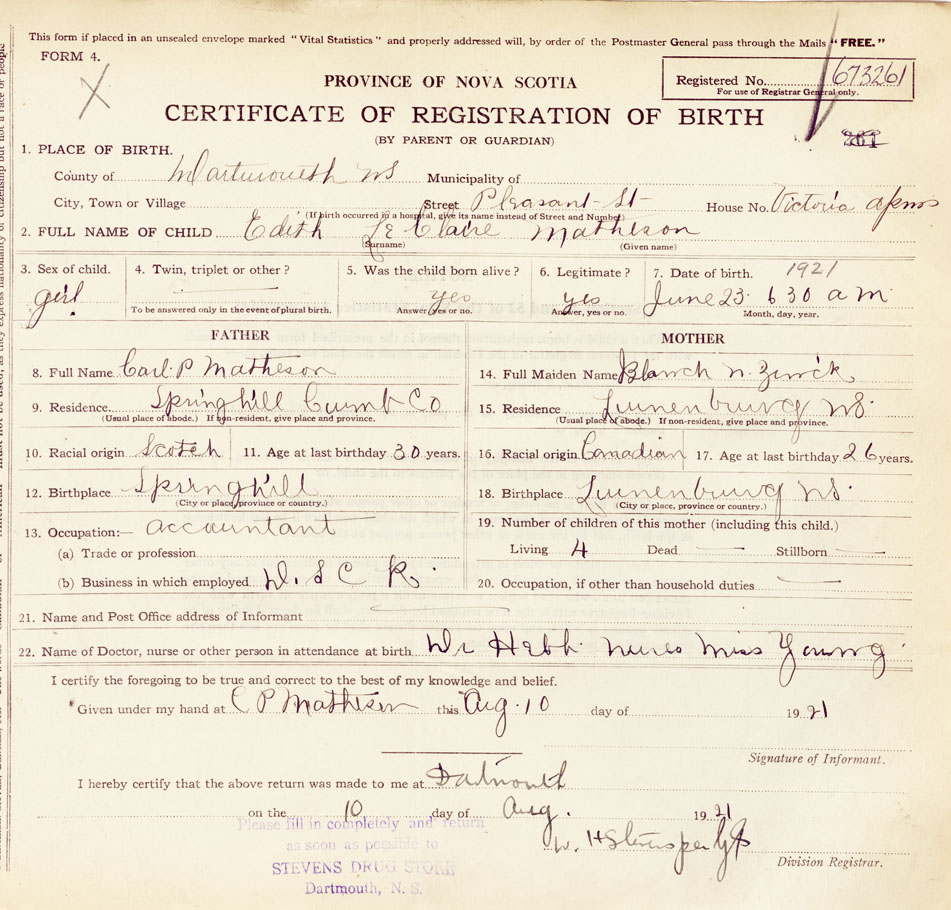 This form if placed in an unsealed envelope marked "Vital Statistics" and properly addressed will, by order of the Postmaster General pass through the Mails "FREE."
FORM 4.
PROVINCE OF NOVA SCOTIA
Registered No. 673261
For use of Registrar General only.
CERTIFICATE OF REGISTRATION OF BIRTH
(BY PARENT OR GUARDIAN)
261
1. PLACE OF BIRTH.
County of Dartmouth NS Municipality of
City, Town or Village Street Pleasant St House No. Victoria
(If birth occurred in a hospital, give its name instead of Street and Number)
2. FULL NAME OF CHILD Edith Le Claire Matheson
(Surname) (Given name)
3. Sex of child. 4. Twin, triplet or other? 5. Was the child born alive? 6. Legitimate? 7. Date of birth. 1921
girl yes yes June 23 6 30 a m
To be answered only in the event of plural birth. Answer, yes or no. Answer, yes or no. Month, day, year.
FATHER MOTHER
8. Full Name Carl P Matheson 14. Full Maiden Name Blanch N. Zinck
9. Residence Springhill Cumb Co 15. Residence Lunenburg NS.
(Usual place of abode.) If non-resident, give place and province. (Usual place of abode.) If non-resident, give place and province.
10. Racial origin Scotch 11. Age at last birthday 30 years. 16. Racial origin Canadian 17. Age at last birthday 26 years.
12. Birthplace Springhill 18. Birthplace Lunenburg NS.
(City or place, province or country.) (City or place, province or country.)
13. Occupation:— accountant 19. Number of children of this mother (including this child.)
(a) Trade or profession Living 4 Dead — Stillborn —
(b) Business in which employed D. S C R. 20. Occupation, if other than household duties —
21. Name and Post Office address of Informant
22. Name of Doctor, nurse or other person in attendance at birth Dr Hebb. Miss Young
I certify the foregoing to be true and correct to the best of my knowledge and belief.
Given under my hand at C P Matheson this Aug. 10 day of 1921
Signature of Informant.
I hereby certify that the above return was made to me at Dartmouth
on the 10 day of Aug. 1921
Please fill in completely and return
as soon as possible to
W. H Stevens per
STEVENS DRUG STORE
Division Registrar.
Dartmouth, N. S.